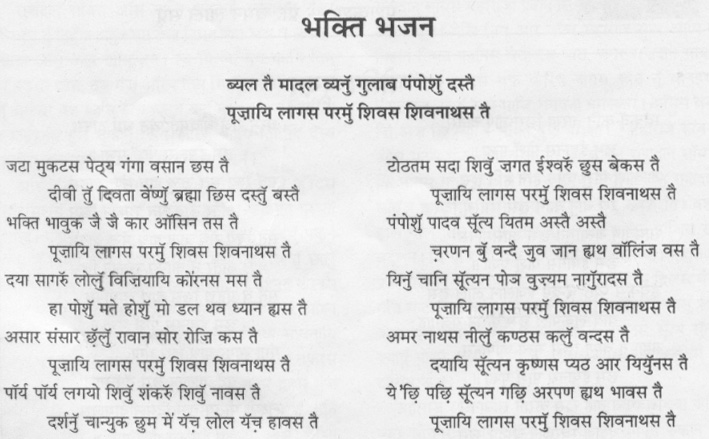 भक्ति भजन
ब्यल तै मादल व्यनुँ गुलाब पंपोशुँ दस्तै
पूज़ायि लागस परमुँ शिवस शिवनाथस तै
जटा मुकटस पेठ्य गंगा वसान छस तै
दीवी तुँ दिवता वेष्णुँ ब्रह्मा छिस दस्तुँ बस्तै
भक्ति भावुक जै जै कार ऑसिन तस तै
पूज़ायि लागस परमुँ शिवस शिवनाथस तै
दया सागरुँ लोलुँ विज़ियायि कोरनस मस तै
हा पोशुँ मते होशुँ मो डल थव ध्यान ह्यस तै
असार संसार छॅलुँ रावान सोर रोज़ि कस तै
पूज़ायि लागस परमुँ शिवस शिवनाथस तै
पॉर्य पॉर्य लगयो शिवुँ शंकरुँ शिवुँ नावस तै
दर्शनुँ चान्युक छुम में यॅच़ लोल यॅच़ हावस तै
टोठतम सदा शिवुँ ज़गत ईश्वरुँ छुस बेकस तै
पूज़ायि लागस परमुँ शिवस शिवनाथस तै
पंपोशुँ पादव सूँत्य यितम अस्तै अस्तै
च़रणन बुँ वन्दै जुव जान ह्यथ वॉलिंज वस तै
यिनुँ चानि सूँत्यन पोञ वुज़्यम नागुँरादस तै
पूज़ायि लागस परमुँ शिवस शिवनाथस तै
अमर नाथस नीलुँ कण्ठस कलुँ वन्दस तै
दयायि सूँत्यन कृष्णस प्यठ आर यियुँनस तै
ये'छि़ पछि़ सूँत्यन गछि़ अरपण ह्यथ भावस तै
पूज़ायि लागस परमुँ शिवस शिवनाथस तै